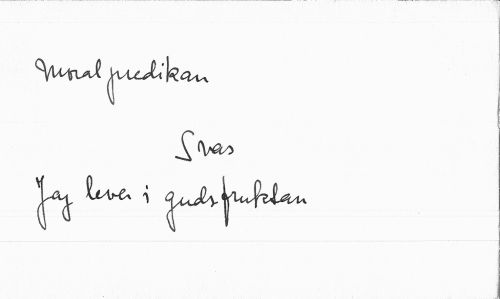 Moralpredikan
Svar
Jag lever i gudsfruktan